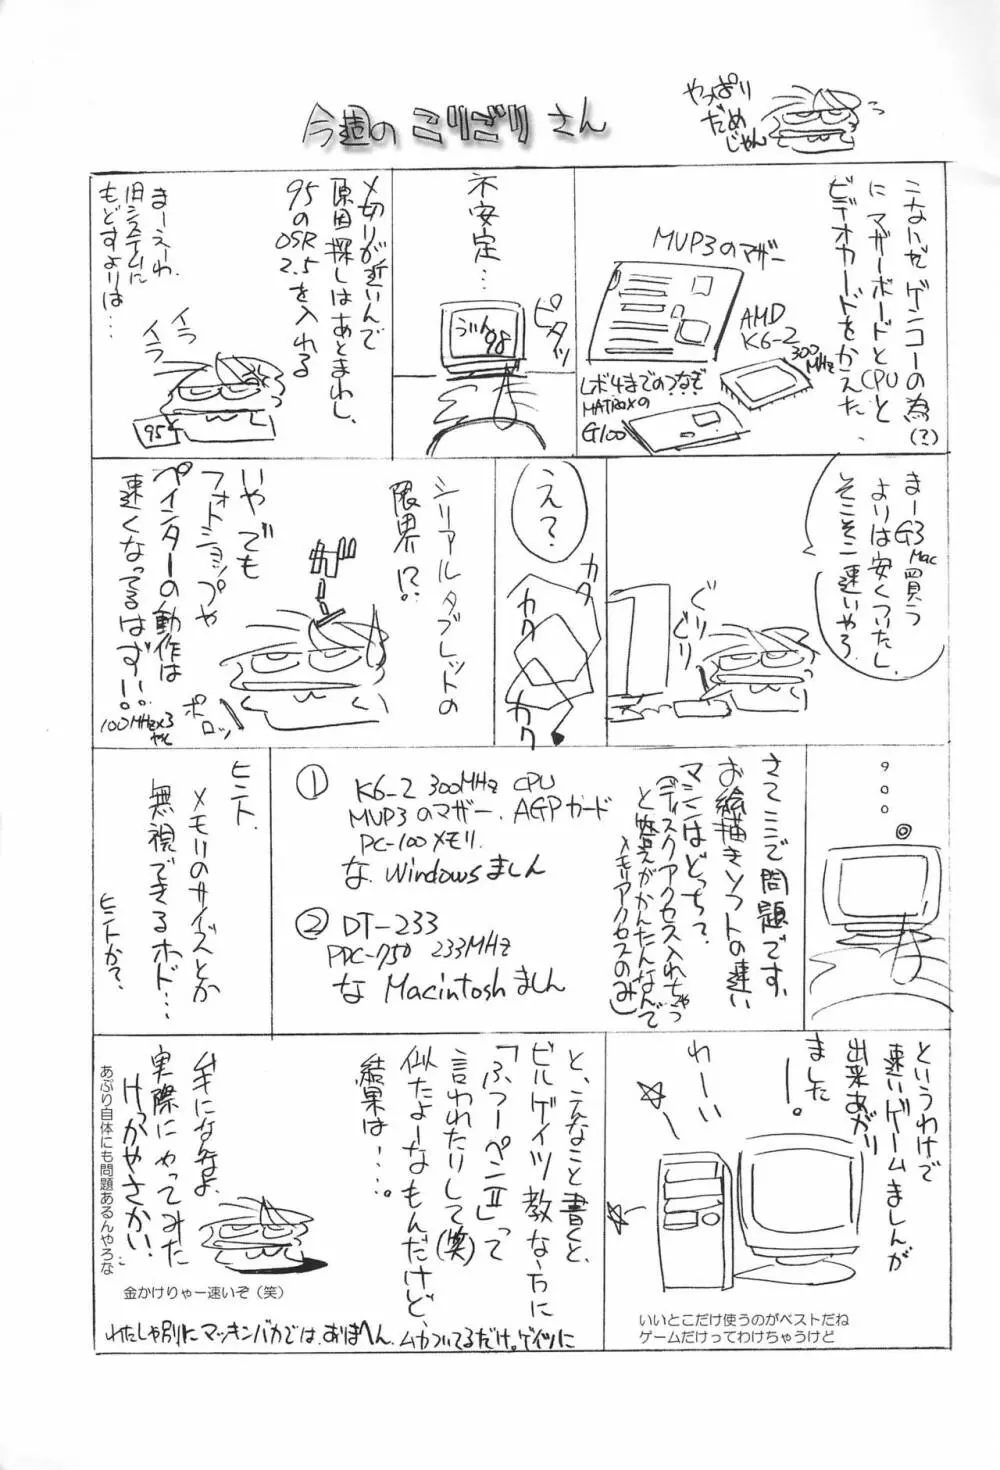 今週のこりごりさん
やっぱり
だめ
じゃん
こないだゲンコーの為(?)
にマザーボードとCPUと
ビデオカードをかえた
MVP3のマザー
AMD
K6-2
300MHz
レボ4までのつなぎ
MATROXの
G100
不安定…
うぃん98
ピタッ
〆切りが近いんで
原因探しはあとまわし、
95のOSR2.5を入れる
まーえーわ、
旧システムに
もどすよりは…
イライラ
95
まーG3Mac買う
よりは安くついたし、
そこそこ速いやろ
ぐりぐり
え?
カクカクカク
シリアルタブレットの
限界!?
いやでも
フォトショップや
ペインターの動作は
速くなってるはず!!
100MHz×3やし
ポロッ
。。。
さてここで問題です、
お絵描きソフトの速い
マシンはどっち?
(ディスクアクセス入れちゃう
と答えがかんたんなんで
メモリアクセスのみ)
① K6-2 300MHz CPU
MVP3のマザー、AGPカード
PC-100メモリ
な、Windowsましん
② DT-233
PPC-750 233MHz
な Macintoshましん
ヒント、
メモリのサイズとか
無視できるホド…
ヒントか?
というわけで
速いゲームましんが
出来あがり
ましたー。
わーい
いいとこだけ使うのがベストだね
ゲームだけってわけちゃうけど
と、こんなこと書くと、
ビルゲイツ教な方に
「ふつーペンⅡ」って
言われたりして(笑)
似たよーなもんだけど、
結果は…。
ムキになんなよ、
実際にやってみた
けっかやさかい!
あぷり自体にも問題あるんやろな
金かけりゃー速いぞ(笑)
わたしゃ別にマッキンバカでは、おまへん、ムカついてるだけ。ゲイツに